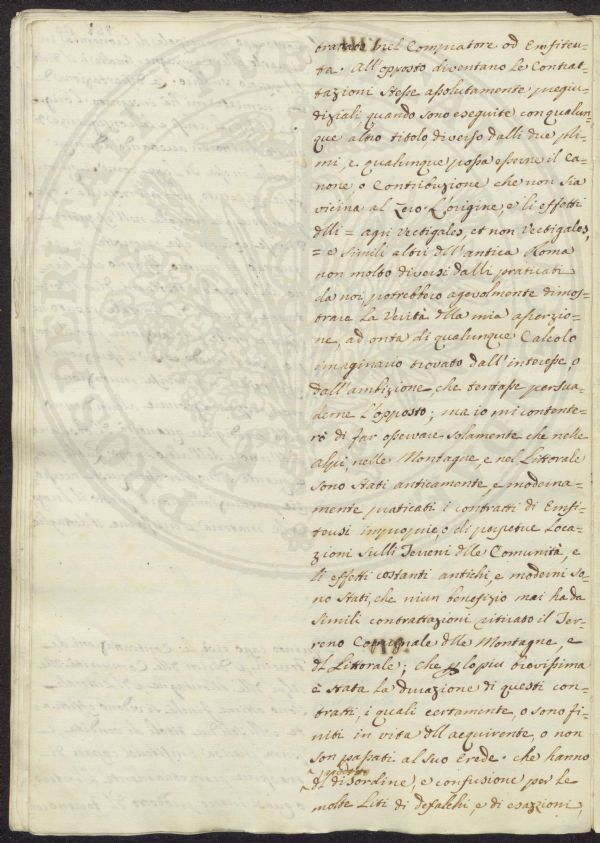 trattato nel Compratore od Emfiteu-
ta. All'opposto diventano le Contrat-
tazioni stesse assolutamente pregiu-
diziali quando sono eseguite con qualun-
que altro titolo diverso dalli due pri-
mi, e qualunque possa essere il Ca-
none, o Contribuzione che non sia
vicina al Zero. L'origine, e li effetti
dlli = agri vectigales, et non vectigales,
= e simili altri dll'antica Roma
non molto diversi dalli praticati
da noi potrebbero agevolmente dimos-
trare la Verità dlla mia asserzio-
ne, ad onta di qualunque Calcolo
imaginario trovato dall'interesse, o
dall'ambizione, che tentasse persua-
derne l'opposto; ma io mi contente-
rò di far osservare solamente che nelle
alpi, nelle Montagne, e nel Littorale
sono stati anticamente, e moderna-
mente praticati i contratti di Emfi-
teusi improprie, o di perpetue Loca-
zioni sulli Terreni dlle Comunità, e
li effetti costanti antichi, e moderni so-
no stati, che niun benefizio mai ha da
simili contrattazioni ritirato il Ter-
reno Comunale dlle Montagne, e
dl Littorale; che p lo più brevissima
è stata la durazione di questi con-
tratti, i quali certamente, o sono fi-
niti in vita dll'acquirente, o non
son passati al suo Erede. che hanno
prodotto
dl disordine, e confusione per le
molte liti di defalchi, e di esazioni,